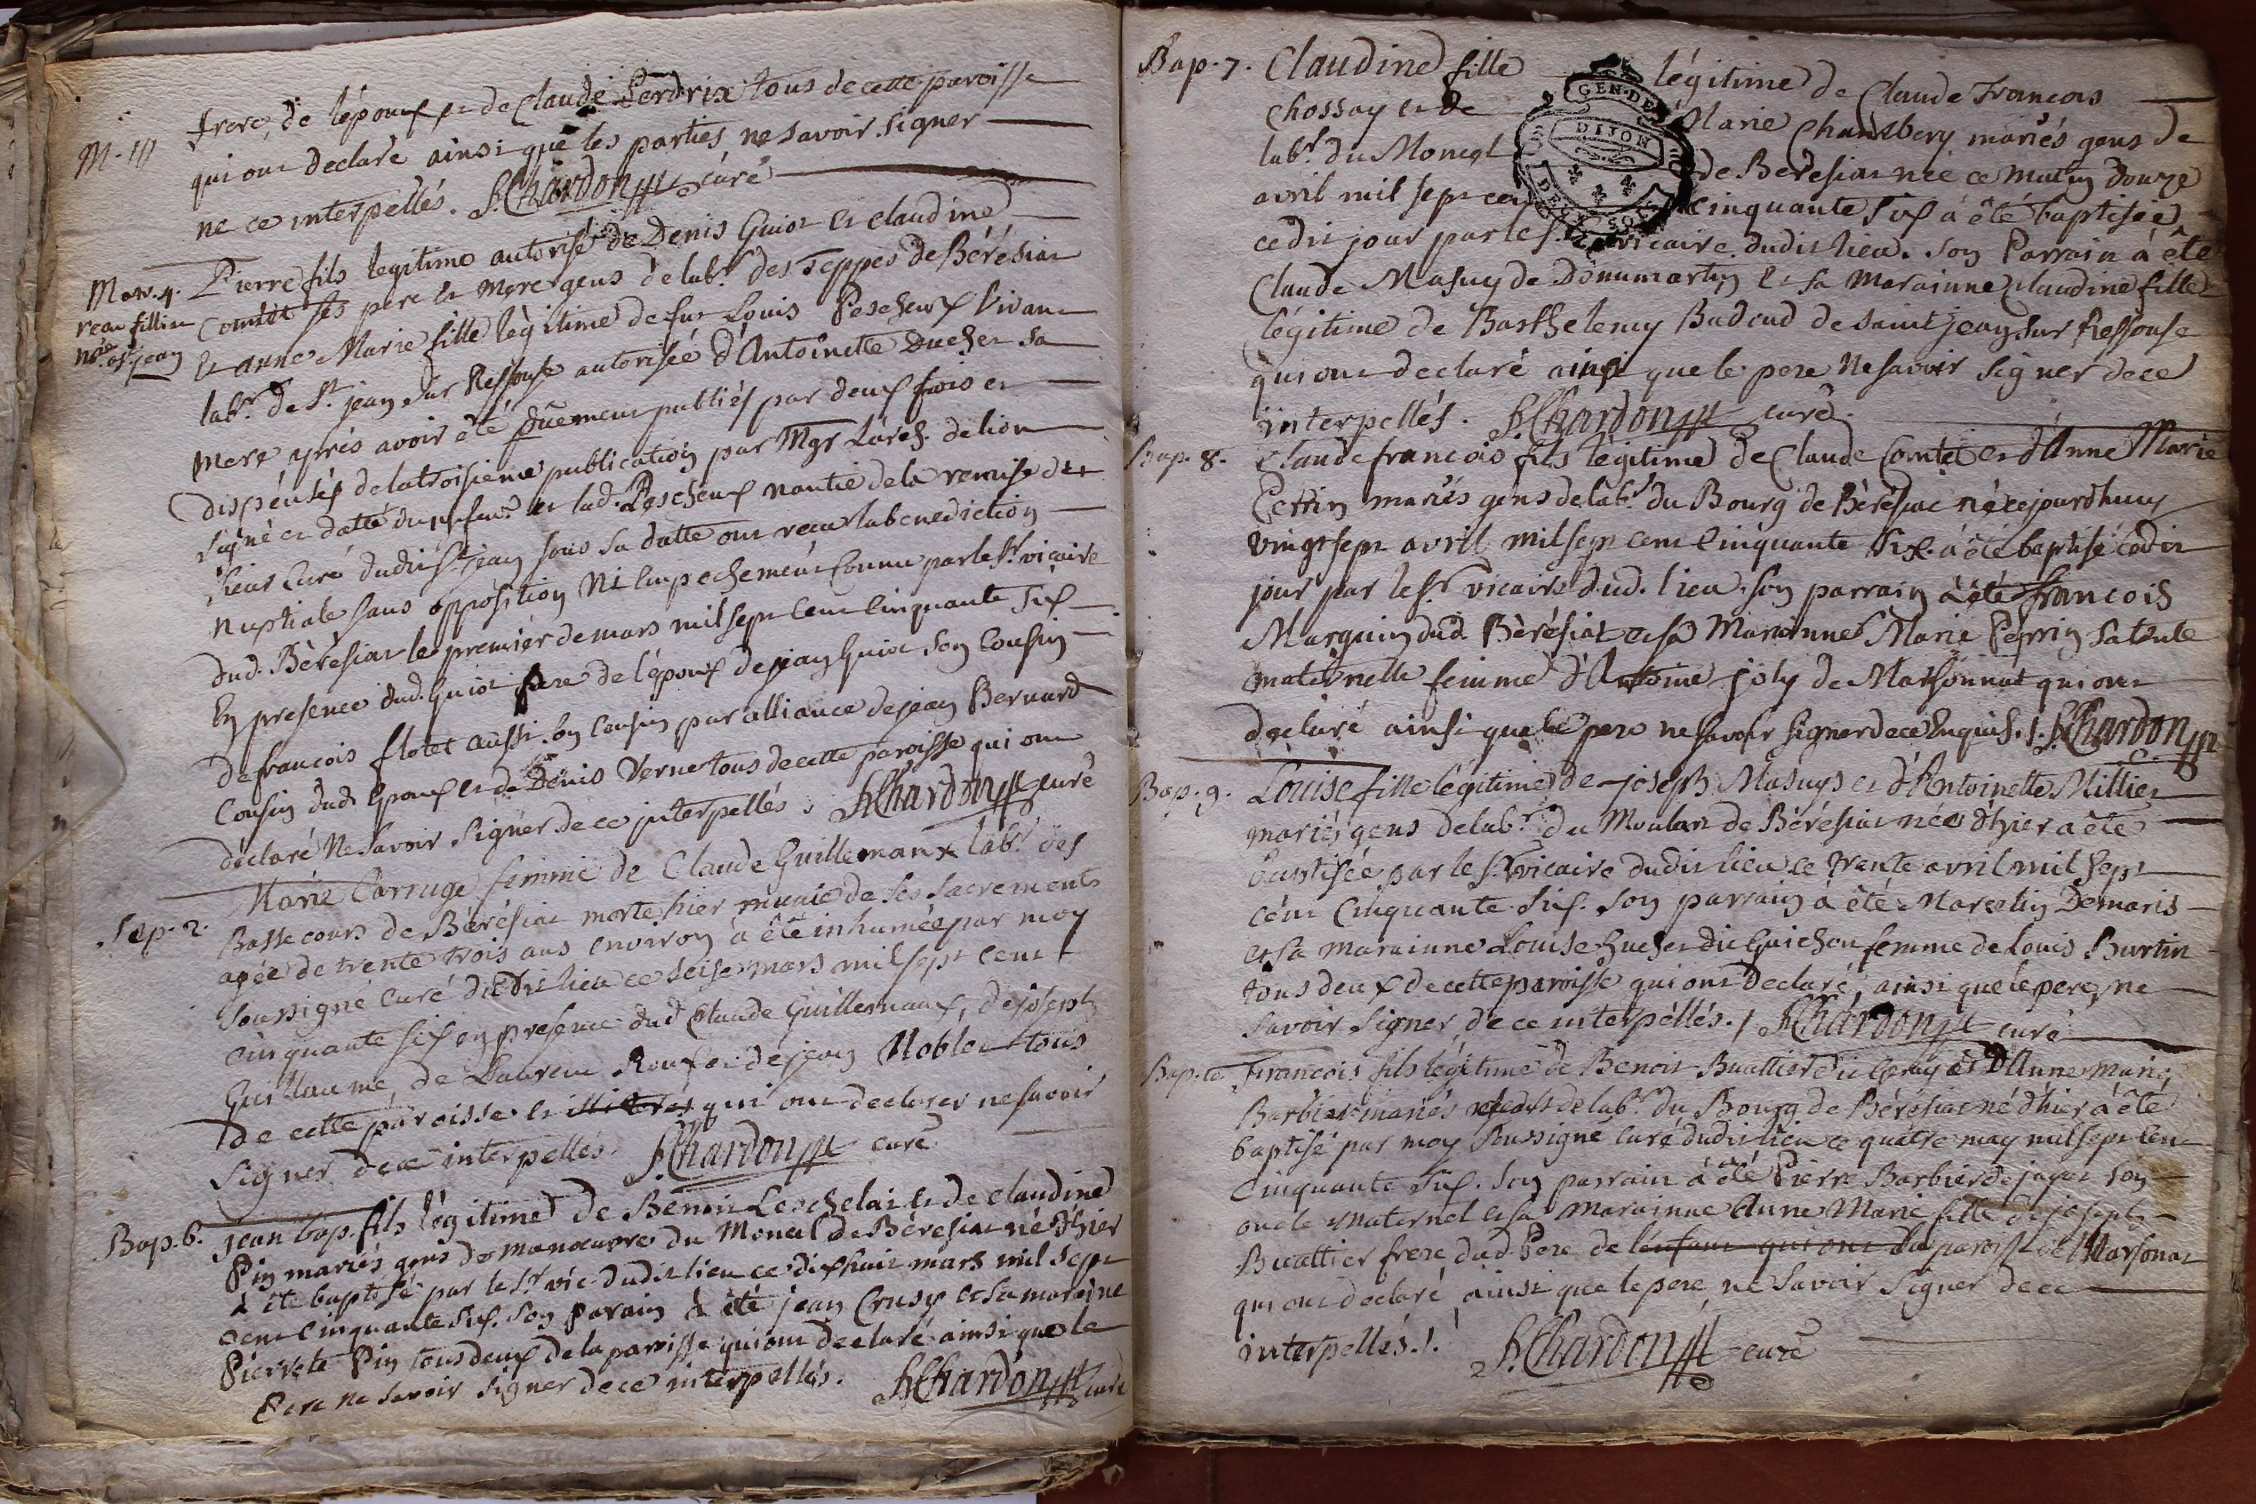 frere de l'époux et de Claude Perdrix tous de cette paroisse
M. III
qui ont declaré ainsi que les parties ne savoir signer
ne ce interpellés. Chardon curé
Mar. 4. Pierre fils legitime autorisé de Denis Guiot et claudine
ses pere et mere gens de labr. des Teppes de Bérésiat
et anne Marie fille légitime de fut Louis Pescheux vivant
labr. de St. jean sur Ressouse autorisée d'Antoinette Ducher sa
mere aprés avoir été düement publiés par deux fois et
dispensés de la troisieme publication par Mgr Larch. de lion
signé et datté du et lad. Pescheux nantie de la remise du
sieur Curé dudit St. jean sous sa datte ont recu la benediction
nuptiale sans opposition ni empechement connu par le Sr. vicaire
dud. Bérésiat le premier de mars mil sept cent cinquante six
En presence dud. Guiot pere de l'époux de jean Guiot son cousin
de francois flotet aussi son cousin par alliance de jean Bernard
cousin dud. Epoux et de Denis Verne tous de cette paroisse qui ont
déclaré ne savoir signer de ce interpellés. Chardon curé
Sep. 2. Marie Carruge femme de Claude Guillemaux labr. des
Basse cours de Bérésiat morte hier munie de ses sacrements
agée de trente trois ans environ a été inhumée par moy
soussigné curé dudit lieu ce seise mars mil sept cent
cinquante six en presence dud. Claude Guillemaux, de joseph
Guillaume, de Laurent Roux et de jean Noblet tous
de cette paroisse et illiterés qui ont declarer ne savoir
signer de ce interpellés. Chardon curé
Bap. 6. jean bap. fils légitime de Benoit Leschelai et de claudine
Pin mariés gens de manoeuvre du Moncel de Bérésiat né d'hier
a été baptisé par le Sr. vic. dudit lieu ce dixhuit mars mil sept
cent cinquante six. son parain a été jean Crusy et sa maraine
Pierrete Pin tous deux de la paroisse qui ont declaré ainsi que le
Pere ne savoir signer de ce interpellés. Chardon curé
Bap. 7. Claudine fille légitime de Claude Francois
Chossay et de Marie Chambery mariés gens de
labr. du Moncel de Bérésiat née ce matin douze
avril mil sept cent cinquante six a été baptisée
cedit jour par le Sr. vicaire dudit lieu. son Parrain a été
Claude Masuy de Donmartin et sa Marainne claudine fille
légitime de Barthelemy Badoud de saint jean sur Ressouse
qui ont declaré ainsi que le pere ne savoir signer de ce
interpellés. Chardon curé.
Bap. 8. Claude francois fils légitime de Claude Comte et d'Anne Marie
Perrin mariés gens de labr. du Bourg de Bérésiat né cejourdhuy
vingt sept avril mil sept cent cinquante six. a été baptisé cedit
jour par le Sr. vicaire dud. lieu. son parrain a été francois
Marguin dud. Bérésiat et sa Marainne Marie Perrin sa tente
maternelle femme d'Antoine joly de Marsonnat qui ont
declaré ainsi que le pere ne savoir signer de ce Enquis. Chardon
Bap. 9. Louise fille légitime de joseph Masuys et d'Antoinette Millier
mariés gens de labr. du Moulan de Bérésiat née d'hier a été
baptisée par le Sr. vicaire dudit lieu ce trente avril mil sept
cent cinquante six. son parrain a été Marcelin Demaris
et sa marainne Louise Guicher dit Guichon femme de Louis Burtin
tous deux de cette paroisse qui ont declaré, ainsi que le pere, ne
savoir signer de ce interpéllés. Chardon curé
Bap. 10 Francois fils légitime de Benoit Buattier dit et D'Anne marie
Barbier mariés de labr. du Bourg de Bérésiat né d'hier a été
baptisé par moy soussigné curé dudit lieu ce quatre may mil sept cent
cinquante six. son parrain a été Pierre Barbier de jayat son
oncle maternel et sa marainne Anne Marie fille de joseph
Buattier frere dud. Pere de l'enfant qui ont de la paroisse de Marsonat
qui ont declaré ainsi que le pere ne savoir signer de ce
interpellés. Chardon curé
GEN. DE DIJON
DEUX SOLS